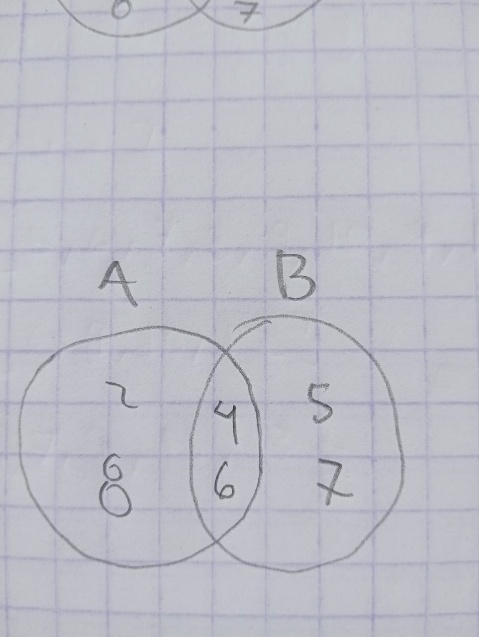 7
A B
2 4 5
8 6 7